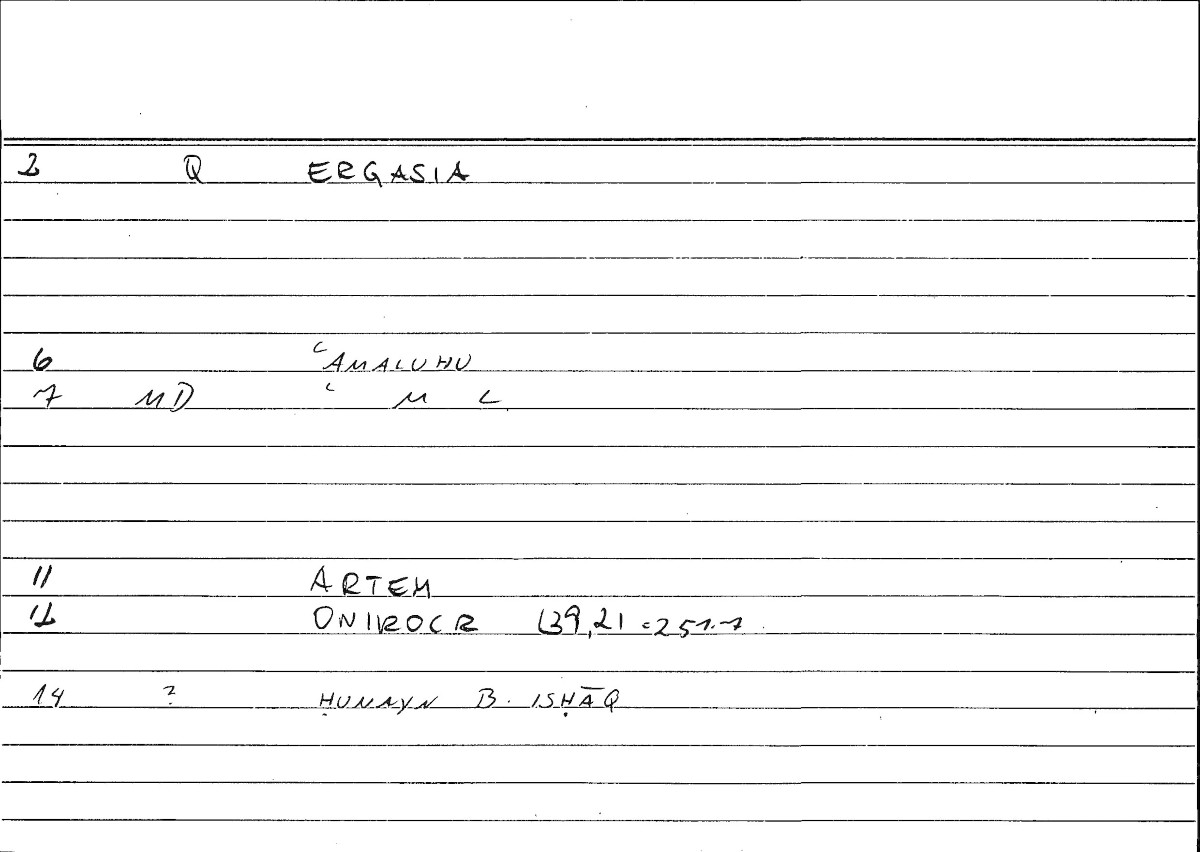 2 Q ERGASIA
6 ʿAMALUHU
7 MD ʿ M L
11 ARTEM
12 ONIROCR 139,21 = 251.7
14 ? ḤUNAYN B. ISḤĀQ